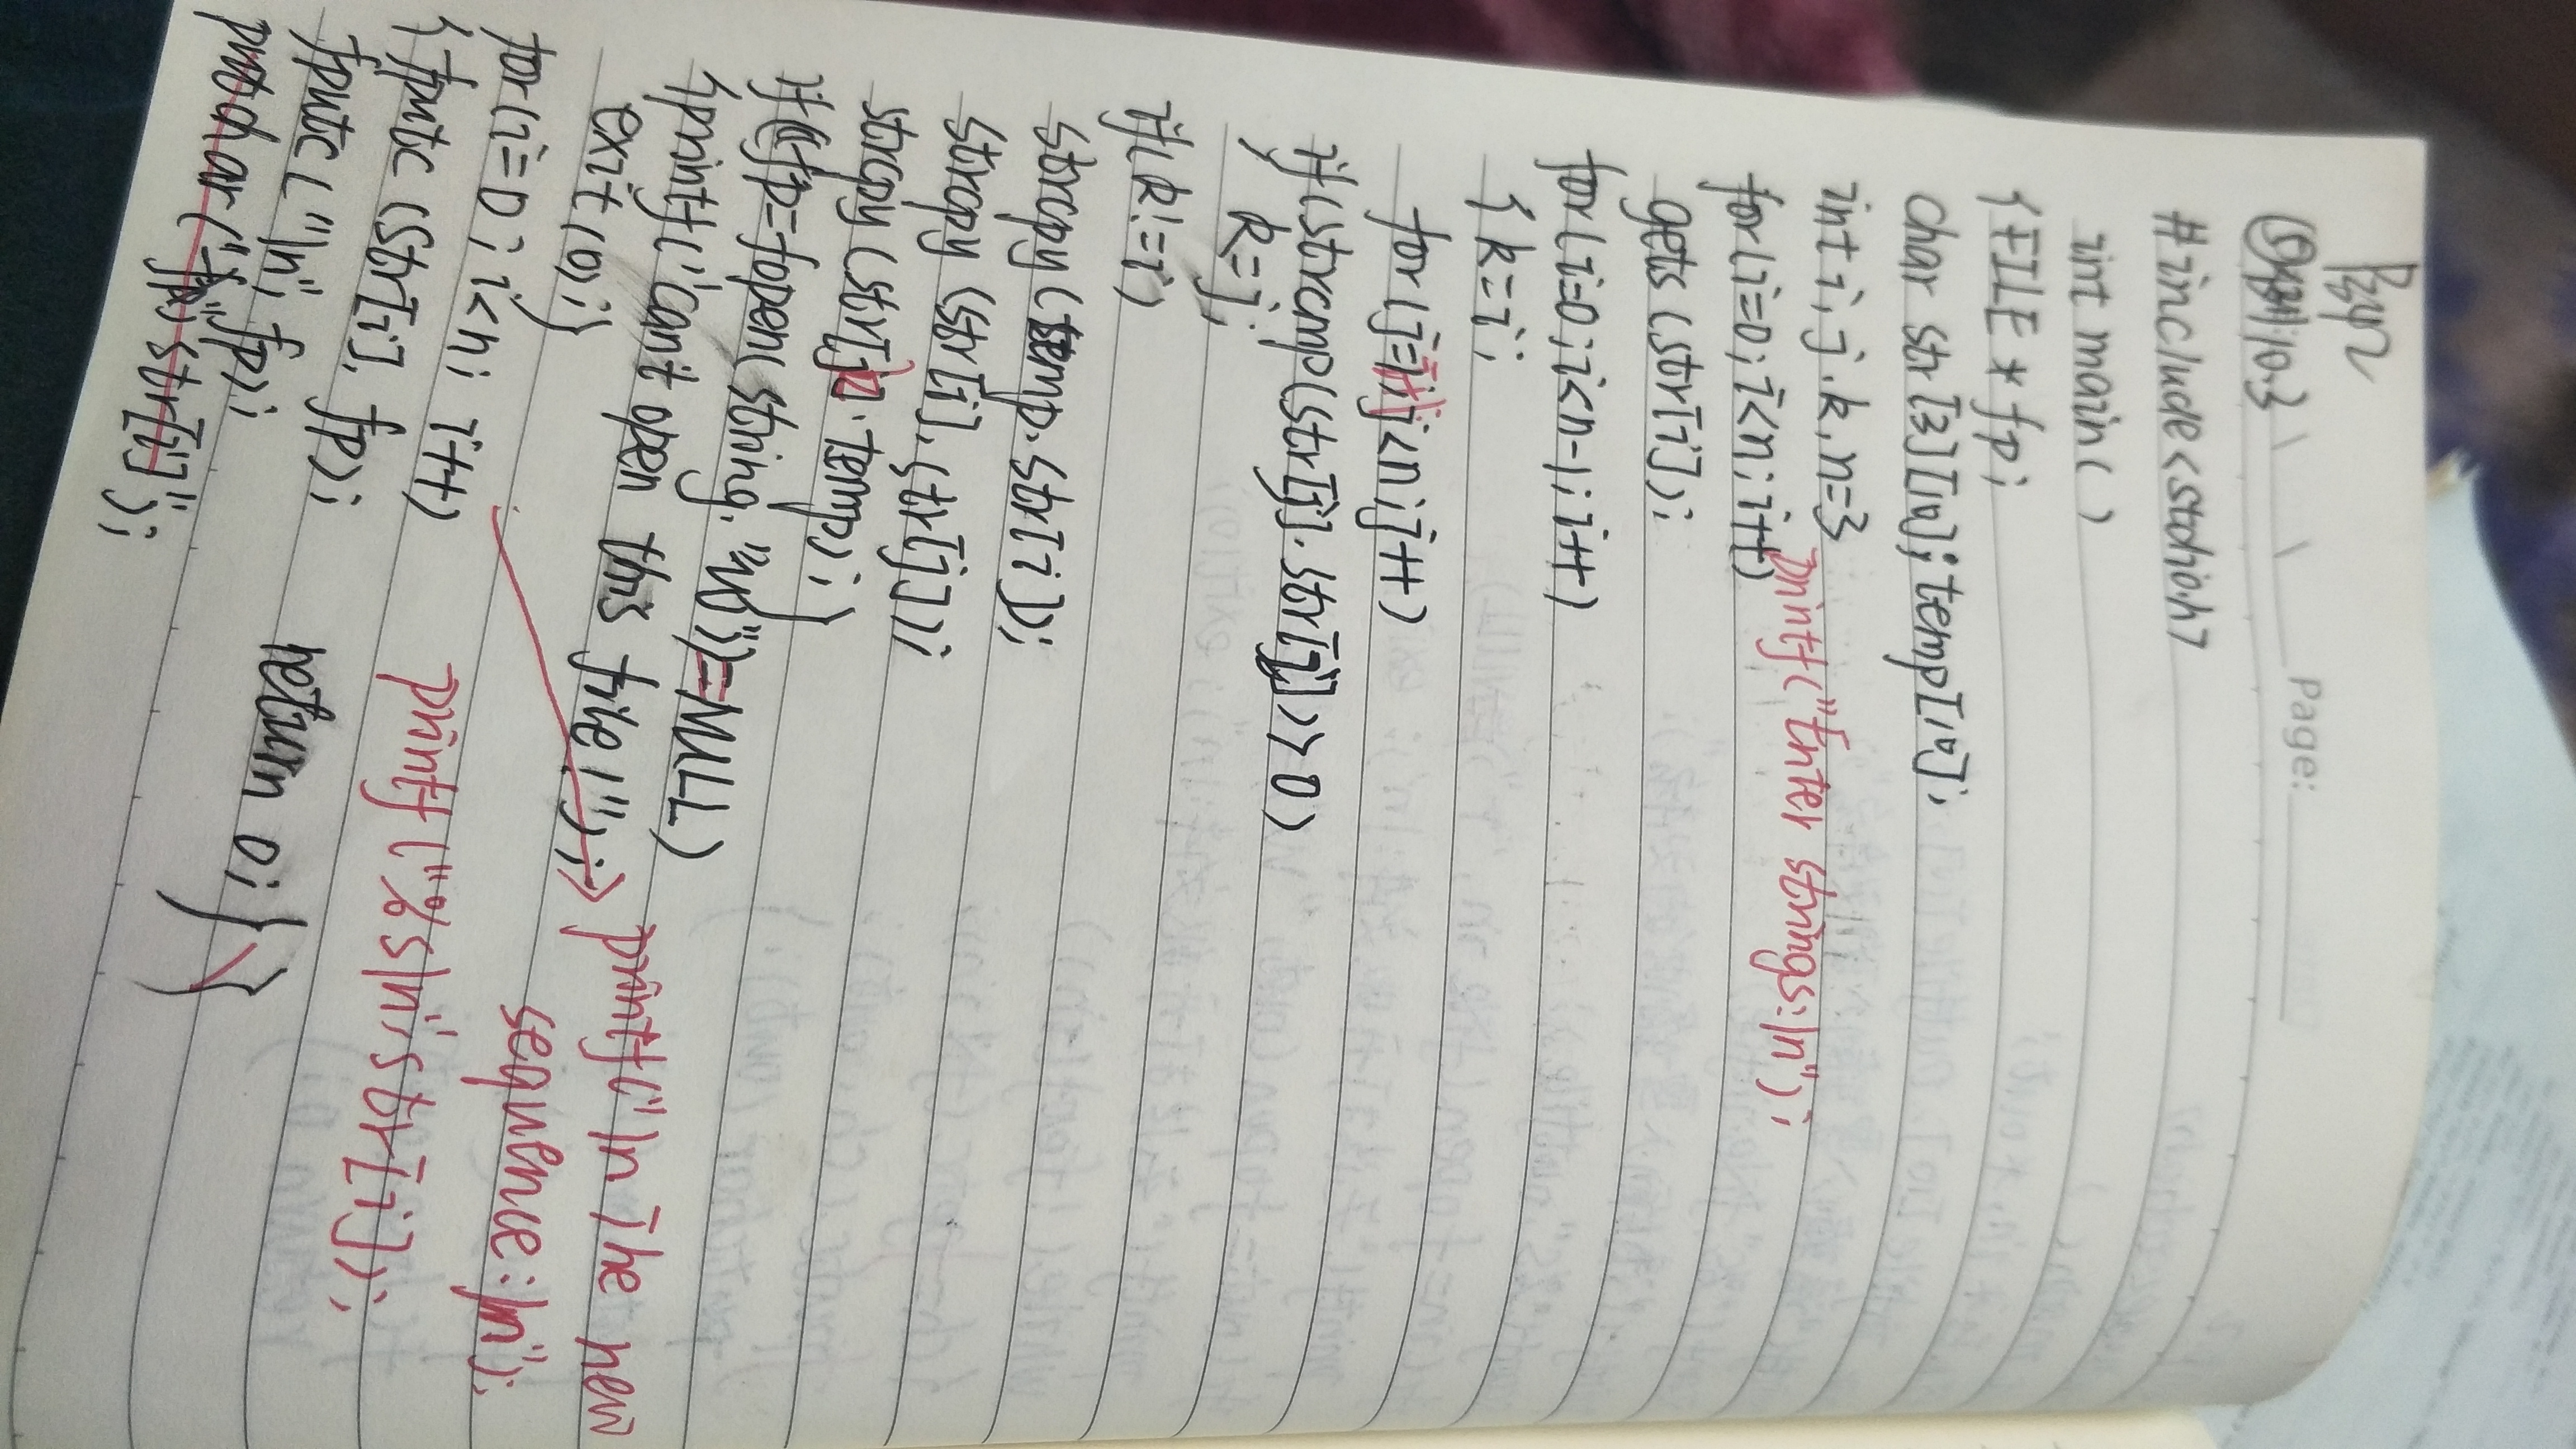 P342
⑤例10.3
Page:
#include<stdio.h>
int main( )
{FILE * fp;
char str[3][10]; temp[10];
int i, j, k, n=3
printf("Enter strings:\n");
for(i=0;i<n;i++)
gets(str[i]);
for(i=0;i<n-1;i++)
{k=i;
for(j=i+1;j<n;j++)
if(strcmp(str[j],str[j])>0)
k=j;
if(k!=i)
strcpy(temp,str[i]);
strcpy(str[i],str[j]);
strcpy(str[k],temp);}
if((fp=fopen(string,"w"))==NULL)
{printf("can't open this file!");
exit(0);}
printf("\n The new
sequence:\n");
for(i=0;i<n; i++)
{fputc(str[i], fp);
printf("%s\n",str[i]);
fputc("\n", fp);
return 0;}}
putchar("fp",str[i]");